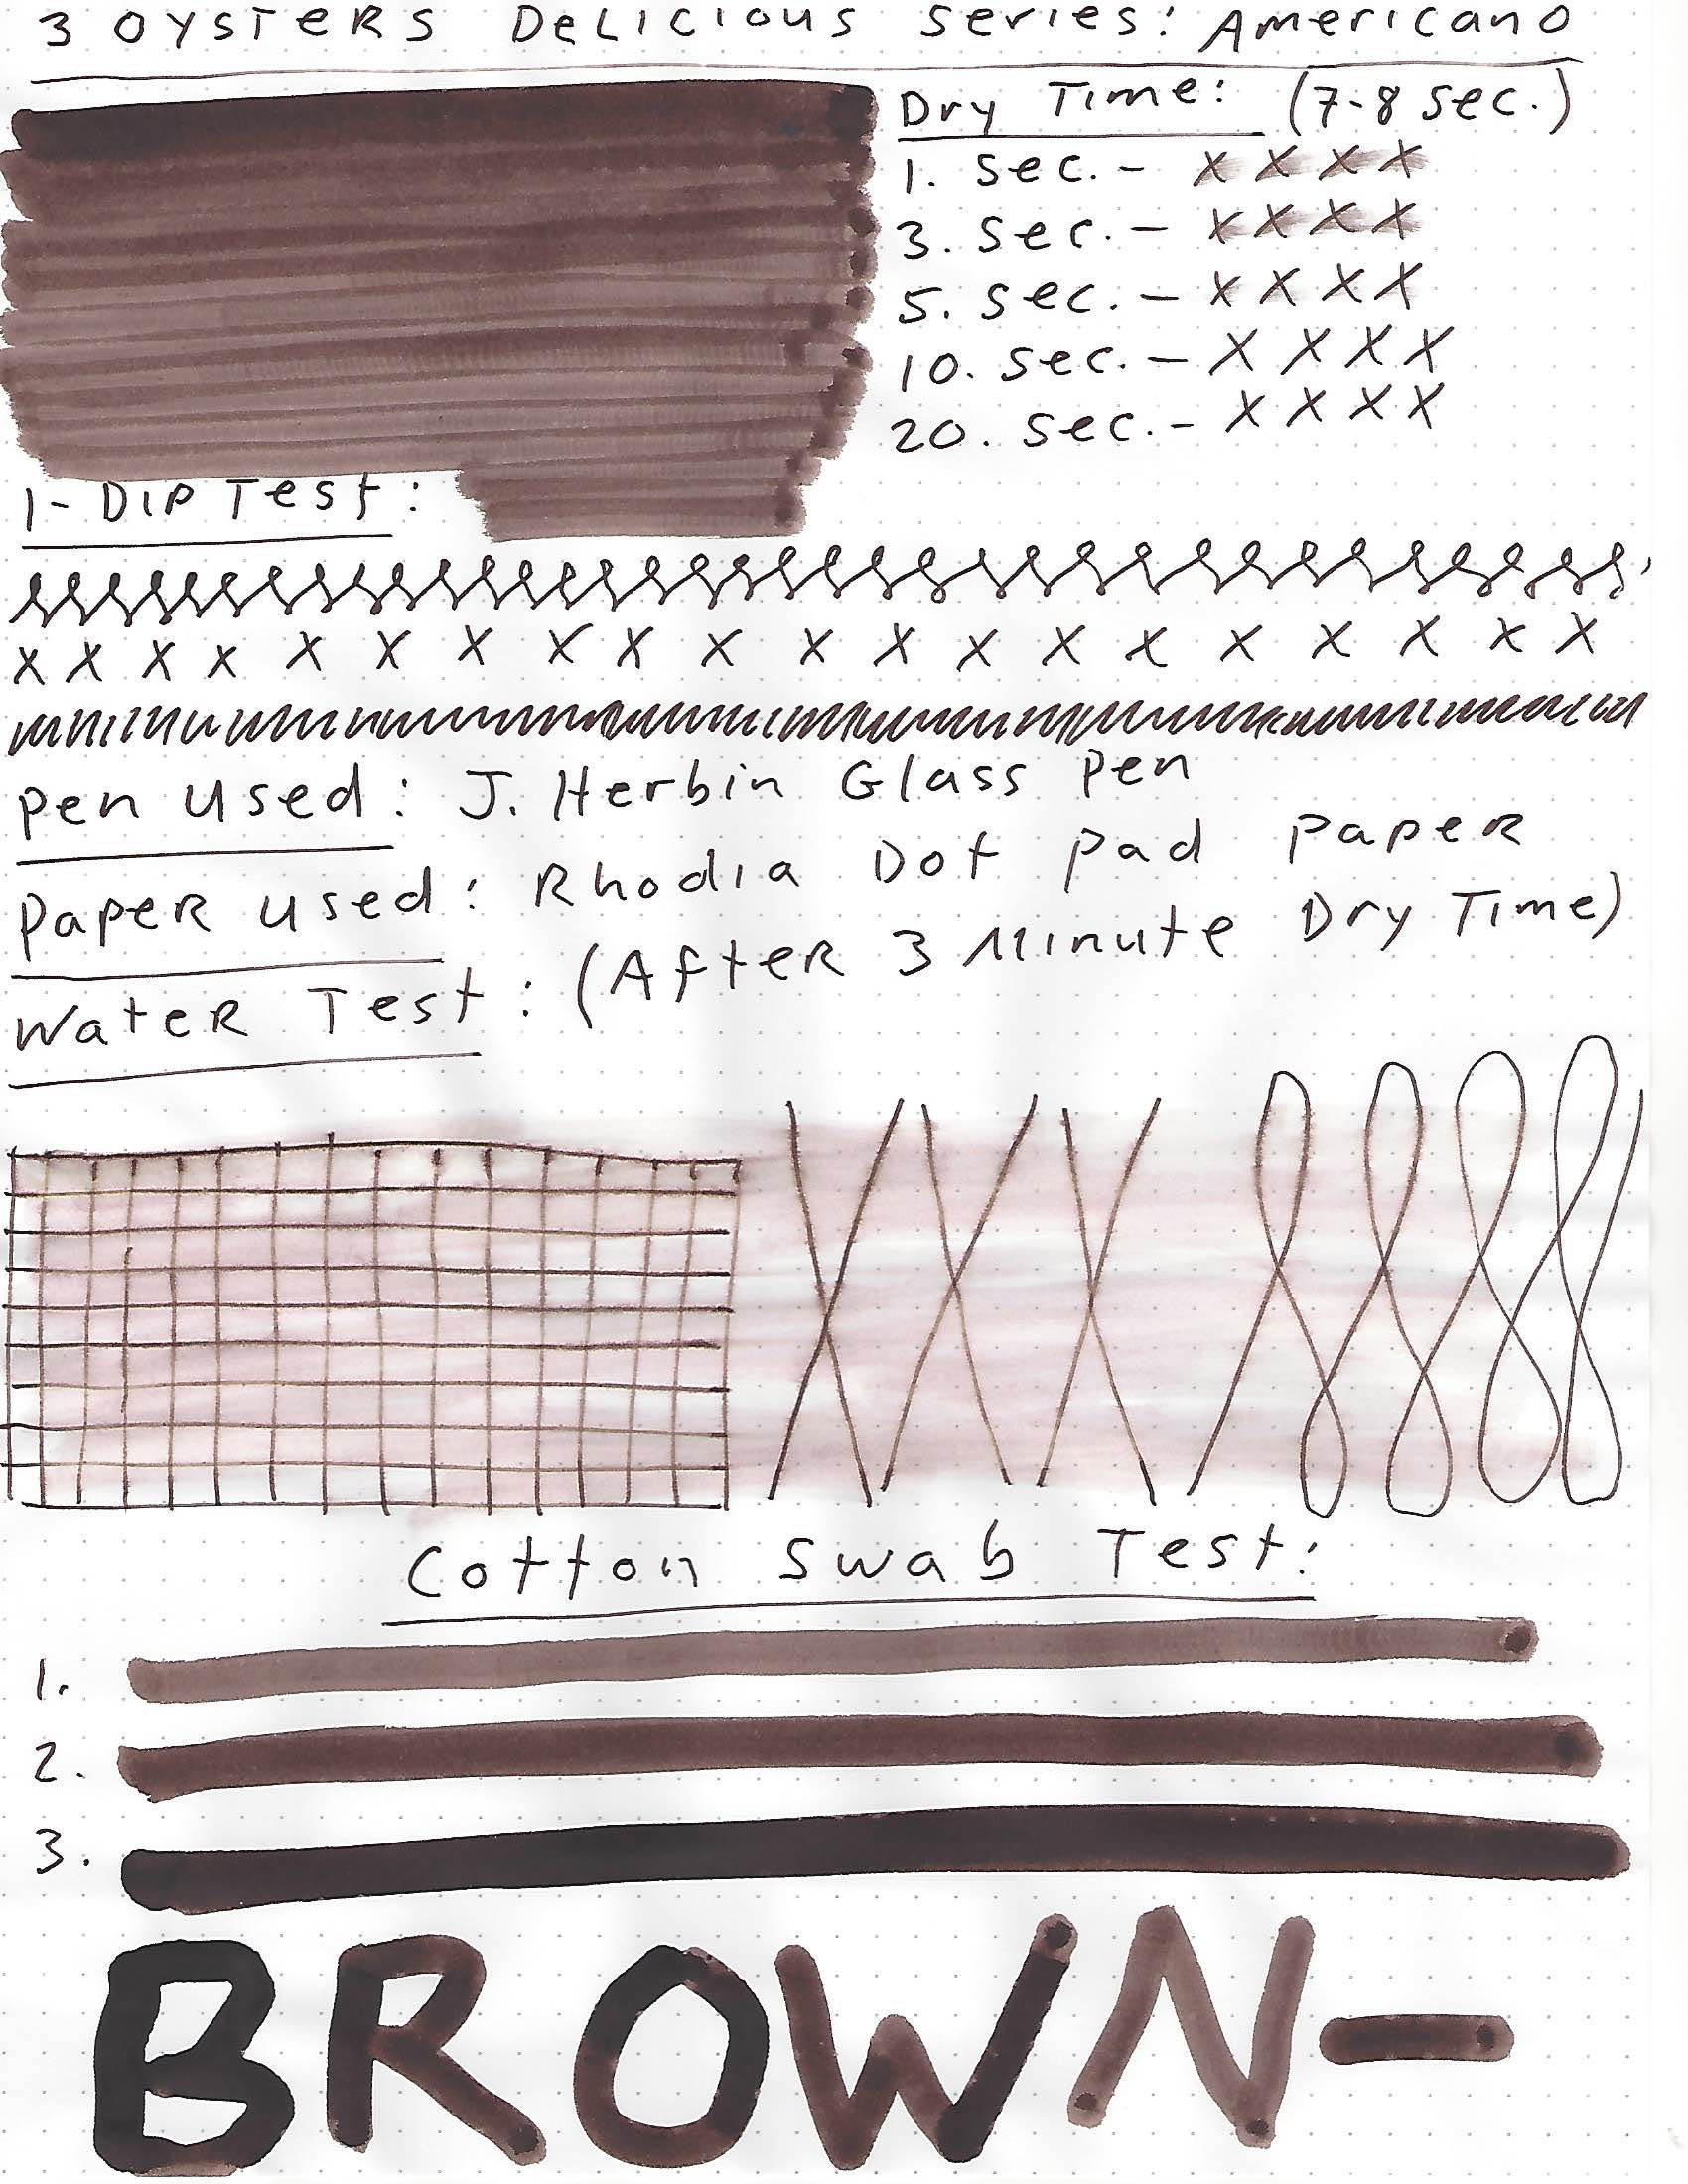 3 OYSTERS DELICIOUS SERIES: AMERICANO
Dry Time: (7-8 sec.)
1. sec. - x x x x
3. sec. - x x x x
5. sec. - x x x x
10. sec. - x x x x
20. sec. - x x x x
1-DIP Test:
x x x x x x x x x x x x x x x x x x x x
Pen Used: J. Herbin Glass Pen
Paper used: Rhodia Dot Pad Paper
Water Test: (After 3 Minute Dry Time)
Cotton Swab Test:
1.
2.
3.
BROWN-